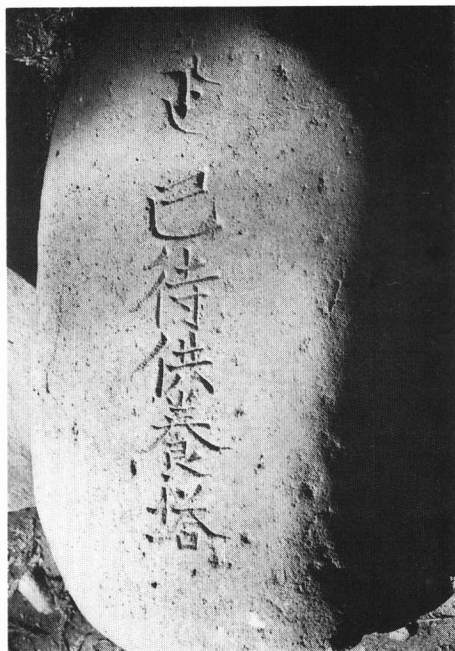 巳待供養塔